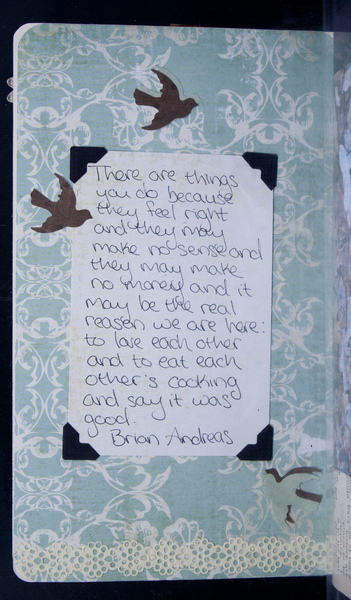 There are things
you do because
they feel right
and they may
make no sense and
they may make
no money and it
may be the real
reason we are here:
to love each other
and to eat each
other's cooking
and say it was
good.
Brian Andreas